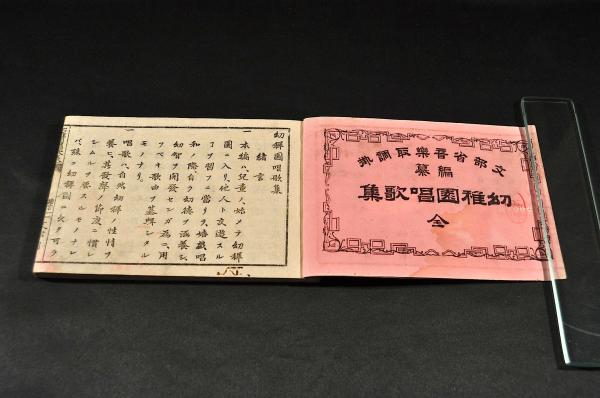 文部省音樂取調掛
編纂
幼稚園唱歌集
全
幼稺園唱歌集
緒言
一 本編ハ兒童ノ始メテ幼稺
園ニ入リ他人ト交遊スル
ヿヲ習フニ當リテ嬉戲唱
和ノ際自ラ幼徳ヲ涵養シ
幼智ヲ開發センガ爲ニ用
フベキ歌曲ヲ纂輯シタル
モノナリ
一 唱歌ハ自然幼稺ノ性情ヲ
養ヒ其發聲ノ節度ニ慣レ
シムルヲ要スルモノナレ
バ殊ニ幼稺園ニ欠ク可ラ